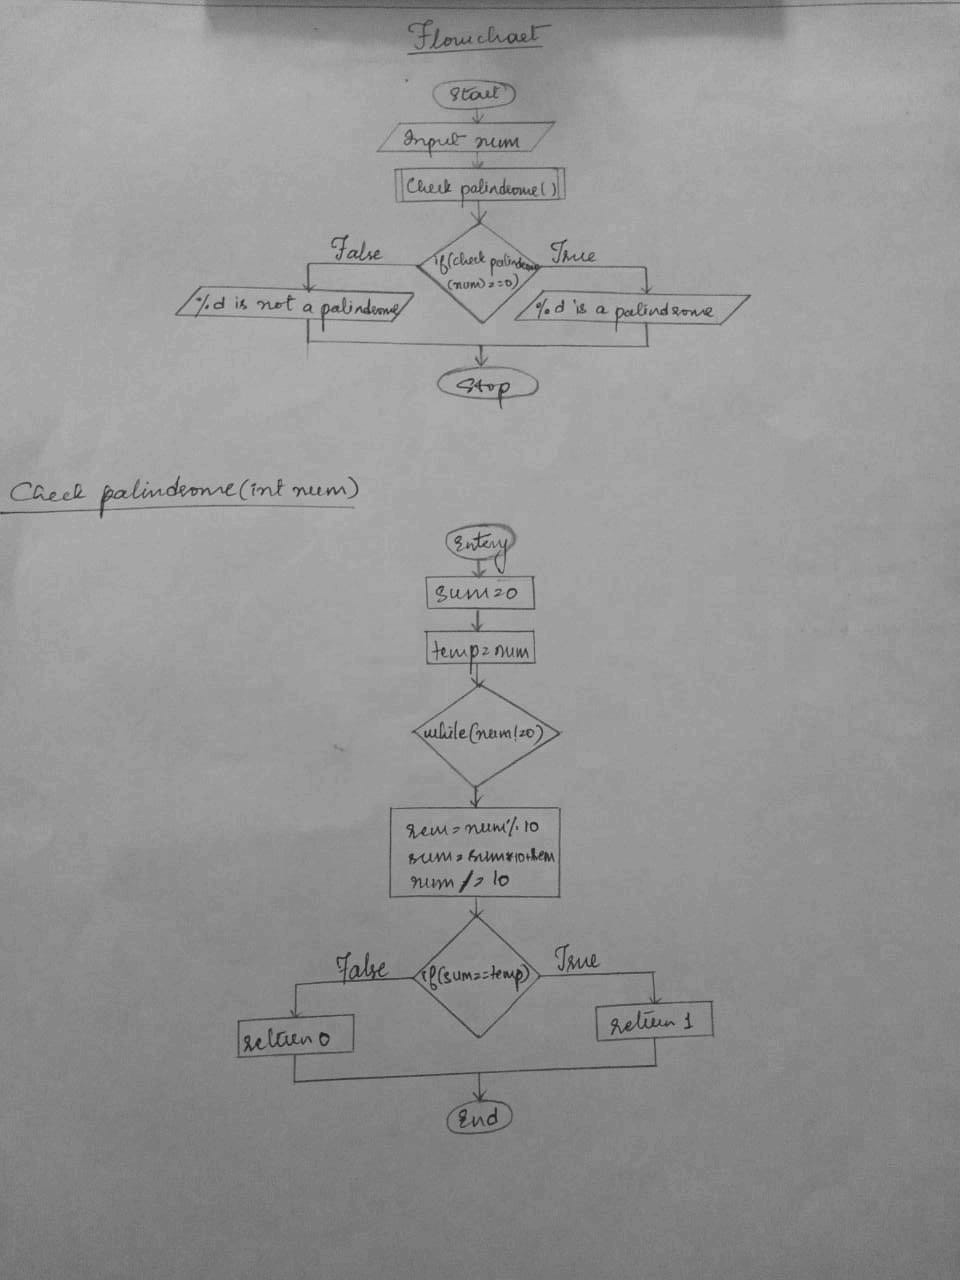 Flowchart
Start
Input num
Check palindrome()
False
if(check palindrome
(num)==0)
True
%d is not a palindrome
%d is a palindrome
Stop
Check palindrome(int num)
Entery
sum=0
temp=num
while(num!=0)
rem=num%10
sum=sum*10+rem
num/=10
False
if(sum==temp)
True
return 0
return 1
End